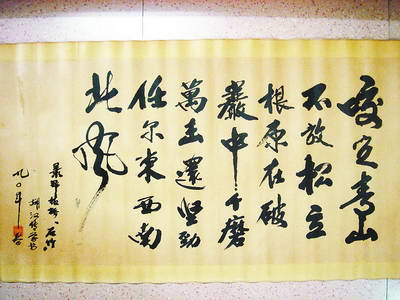 咬定青山
不放松立
根原在破
巖中千磨
萬击還坚劲
任尔東西南
北风
录郑板桥“石竹”
学书
九〇年春